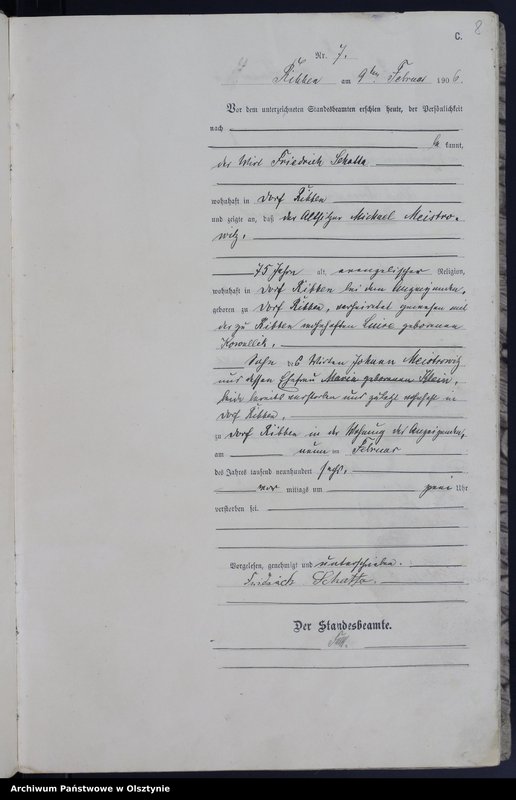 8
C.
Nr. 7.
Ribben am 9ten Februar 1906.
Vor dem unterzeichneten Standesbeamten erschien heute, der Persönlichkeit
nach
be kannt,
der Wirt Friedrich
wohnhaft in Dorf Ribben
und zeigte an, daß der Altsitzer Michael Meistro-
witz,
75 Jahre alt, evangelischer Religion,
wohnhaft in Dorf Ribben bei dem Anzeigenden,
geboren zu Dorf Ribben, verheiratet gewesen mit
der zu Ribben wohnhaften Luise geborenen
Kowallek,
Sohn des Wirten Johann Meistrowitz
und dessen Ehefrau Maria geborenen Klein,
beide bereits verstorben und zuletzt wohnhaft in
Dorf Ribben,
zu Dorf Ribben in der Wohnung des Anzeigenden,
am neun ten Februar
des Jahres tausend neunhundert sechs,
vor mittags um Uhr
verstorben sei.
Vorgelesen, genehmigt und unterschrieben.
Der Standesbeamte.
Archiwum Państwowe w Olsztynie